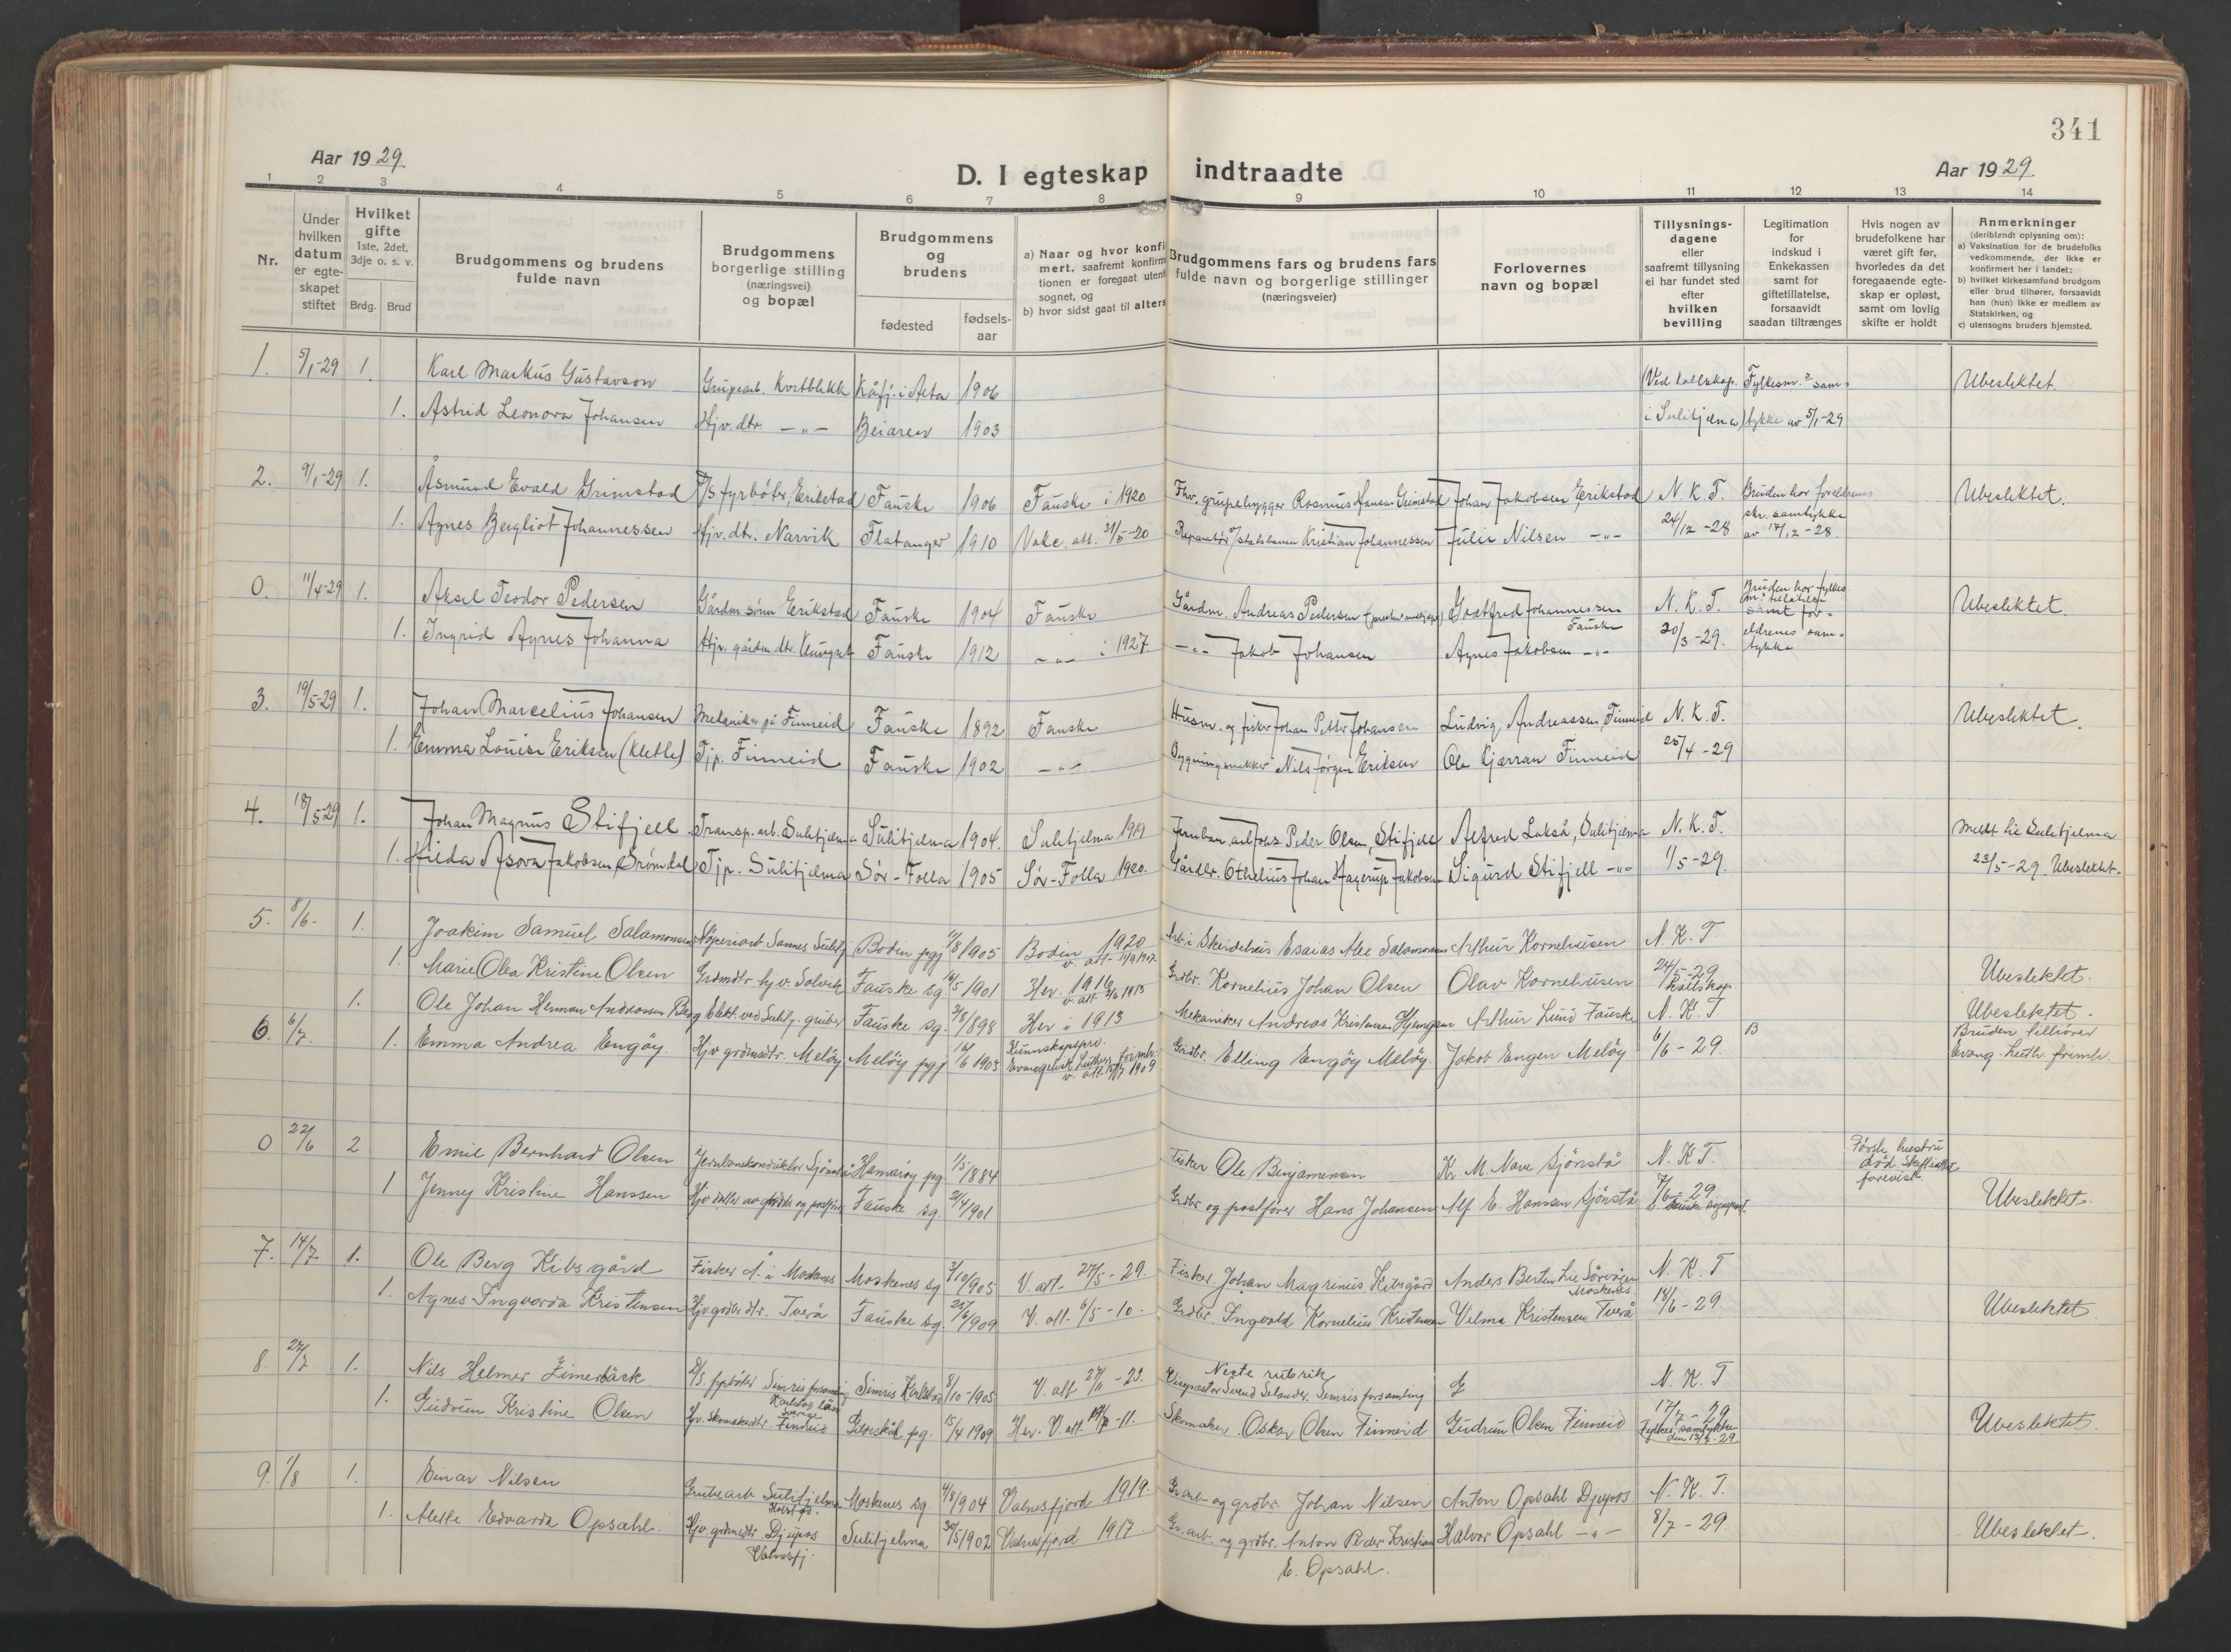 341
Aar 1929. D. I egteskap indtraadte Aar 1929.
1 2 3 4 5 6 7 8 9 10 11 12 13 14
Nr.
Under hvilken datum er egteskapet stiftet
Hvilket gifte 1ste, 2det, 3dje o. s. v.
Brdg. Brud
Brudgommens og brudens fulde navn
Brudgommens borgerlige stilling (næringsvei) og bopæl
Brudgommens og brudens
fødested fødselsaar
a) Naar og hvor konfi
mert, saafremt konfirm
tionen er foregaat utenf
sognet, og
b) hvor sidst gaat til alters
Brudgommens fars og brudens fars fulde navn og borgerlige stillinger (næringsveier)
Forlovernes navn og bopæl
Tillysningsdagene eller saafremt tillysning ei har fundet sted efter hvilken bevilling
Legitimation for indskud i Enkekassen samt for giftetillatelse, forsaavidt saadan tiltrænges
Hvis nogen av brudefolkene har været gift før, hvorledes da det foregaaende egteskap er opløst, samt om lovlig skifte er holdt
Anmerkninger (deriblandt oplysning om):
a) Vaksination for de brudefolks vedkommende, der ikke er konfirmert her i landet;
b) hvilket kirkesamfund brudgom eller brud tilhører, forsaavidt han (hun) ikke er medlem av Statskirken, og
c) utensogns bruders hjemsted.
1. 5/1-29 1. Karl Markus Gustavson Grupearb. Kvitblikk Kåfj. i Alta 1906 (Ved kallskap. Fylkesm.s sam- Ubeslektet.
1. Astrid Leonora Johansen Hjv. dtr. -"- Beiaren 1903 i Sulitjelma) tykke av 5/1-29
2. 9/1-29 1. Åsmund Evald Grimstad D/S fyrböter, Erikstad Fauske 1906 Fauske i 1920 Fhv. grupebygger Rasmus Hansen Grimstad Johan Jakobsen, Erikstad N. K. T. Bruden har foreldrenes Ubeslektet.
1. Agnes Bergliot Johannessen Hjv. dtr. Narvik Flatanger 1910 Vakc. att. 31/5-20 Reparatör v/statsbanen Kristian Johannessen Julie Nilsen -"- 24/12-28 skr. samtykke av 17/12-28.
0. 11/4-29 1. Aksel Teodor Pedersen Gårdm. sönn Erikstad Fauske 1904 Fauske Gårdm. Andreas Pedersen Gottfred Johannessen Fauske N. K. T. Bruden har fylkesm.s tillatelse samt for- Ubeslektet.
1. Ingrid Agnes Johanna Hjv. gårdm. dtr. Fauske 1912 -"- i 1927. -"- Jakob Johansen Agnes Jakobsen -"- 20/3-29. eldrenes samtykke
3. 19/5-29 1. Johan Marcelius Johansen Mekaniker på Finneid Fauske 1892 Fauske Husm. og fisker Johan Petter Johansen Ludvig Andreassen, Finneid N. K. T. Ubeslektet.
1. Emma Louise Eriksen (Kletle) Tjp. Finneid Fauske 1902 -"- Bygningsnekker Nils Jörgen Eriksen Ole Kjærran Finneid 25/4-29
4. 18/5-29 1. Johan Magnus Stifjell Transp. arb. Sulitjelma Sulitjelma 1904. Sulitjelma 1919 Jernban. arb. Peder Olsen, Stifjell Alfred Lakså, Sulitjelma N. K. T. Meldt til Sulitjelma
1. Hilda Asora Jakobsen Tjp. Sulitjelma Sör-Folla 1905 Sör-Folla 1920. Gårdbr. Othelius Johan Hagerup Jakobsen Sigurd Stifjell -"- 1/5-29. 23/5-29. Ubeslektet.
5. 8/6- 1. Joakim Samuel Salamonsen Sannes Sulitj. Bodin pgj 11/8 1905 Bodin 1920 v. att. Arb. i Skeidehus Esaias Salamonsen Arthur Korneliussen N. K. T.
1. Marie Olea Kristine Olsen Grdmdtr hjv. Solvik Fauske sg. 16/5 1901 Her. 1916 v. att. Grdbr. Kornelius Johan Olsen Olav Korneliussen 24/5-29 Ubeslektet.
6. 6/7. 1. Ole Johan Herman Andreassen Berg Elekt. ved Sulitj. gruber Fauske sg. 1898 Her i 1913 Mekaniker Andreas Kristensen Arthur Lund Fauske N. K. T. Ubeslektet.
1. Emma Andrea Engöy. Hjv grdmdtr. Melöy Melöy pgj 1903 Kunnskapsprv. Evangelisk Luthersk frimh. v. att. 1909 Grdbr. Elling Engöy Melöy. Jakob Engen Melöy 6/6-29. B Bruden tilhörer Evang. Luth. frimh.
0 22/6 2 Emil Bernhard Olsen Jernbanekonduktör Sjönstå Hamaröy pg 1/5/1884 Fisker Ole Benjaminsen Kr. M. Nave Sjönstå N. K. T Förste hustru död Skifteattest forevist.
1 Jenny Kristine Hanssen Hjv datter av grdbr og postförer Fauske sg. 21/4/1901 Grdbr og postförer Hans Johansen Alf E. Hanssen Sjönstå 7/6-29 Ubeslektet.
7. 14/7. 1. Ole Berg Kibsgård Fisker Å. i Moskenes Moskenes sg 3/10/1905 V. att. 27/5-29. Fisker Johan Magrinus Kibsgård Anders Lie Sörvågen Moskenes N. K. T
1. Agnes Ingvarda Kristensen Hjv grdbr dtr. Tverå Fauske sg. 25/6/1909 V. att. 6/5-10. Grdbr. Ingvald Kornelius Kristensen Vilma Kristensen Tverå 18/6-29. Ubeslektet
8. 27/7 1. Nils Helmer Zimerbäck D/S. fyrböter Simris forsamling Karlskog län Sverige Simris 8/10-1905 V. att 27/11-23. Neste rubrik Svend Selander. Simris forsamling N. K. T
1. Gudrun Kristine Olsen Hjv. Skomakerdtr. Finneid Gildeskål pg. 15/4 1909 Her. V. att. -11. Skomaker Oskar Olsen Finneid Gudrun Olsen Finneid 17/7-29 Fylkes samtykke Ubeslektet.
9. 1/8 1. Einar Nilsen Grubearb Sulitjelma Moskenes sg. 4/8/1904 Valnesfjord 1919. Gr.arb og grdbr. Johan Nilsen Anton Opsahl Djupos N. K. T.
1. Alette Edvarda Opsahl. Hjv. grdmdtr Djupos Valnesfj. Sulitjelma 30/5/1902 Valnesfjord 1917. Gr. arb. og grdbr. Anton Peder Kristian Halvor Opsahl -"- 8/7-29. Ubeslektet.
E. Opsahl.